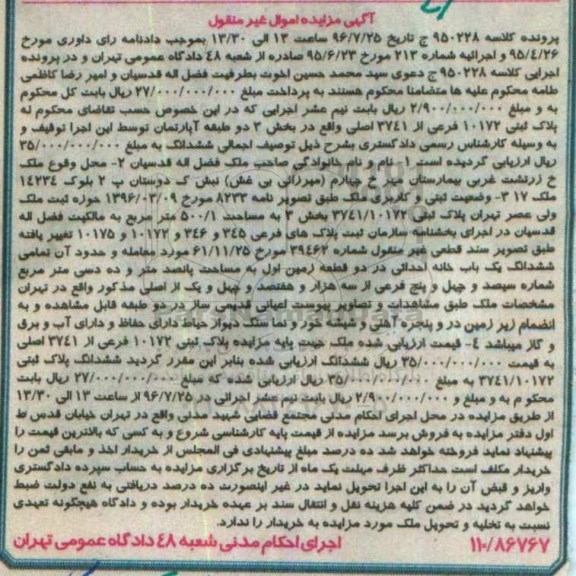 آگهی مزایده اموال غیر منقول
پرونده کلاسه ۹۵۰۲۲۸ ج تاریخ ۹۶/۷/۲۵ ساعت ۱۳ الی ۱۳/۳۰ بموجب دادنامه رای داوری مورخ
۹۵/۴/۲۶ و اجرائیه شماره ۲۱۳ مورخ ۹۵/۶/۲۳ صادره از شعبه ۴۸ دادگاه عمومی تهران و در پرونده
اجرایی کلاسه ۹۵۰۲۲۸ ج دعوی سید محمد حسین اخوت بطرفیت فضل اله قدسیان و امیر رضا کاظمی
طامه محکوم علیه ها متضامنا محکوم هستند به پرداخت مبلغ ۲۷/۰۰۰/۰۰۰/۰۰۰ ریال بابت کل محکوم
به و مبلغ ۲/۹۰۰/۰۰۰/۰۰۰ ریال بابت نیم عشر اجرایی که در این خصوص حسب تقاضای محکوم له
پلاک ثبتی ۱۰۱۷۲ فرعی از ۳۷۴۱ اصلی واقع در بخش ۳ دو طبقه آپارتمان توسط این اجرا توقیف و
به وسیله کارشناس رسمی دادگستری بشرح ذیل توصیف اجمالی ششدانگ به مبلغ ۳۵/۰۰۰/۰۰۰/۰۰۰
ریال ارزیابی گردیده است ۱- نام و نام خانوادگی صاحب ملک فضل اله قدسیان ۲- محل وقوع ملک
خ زرتشت غربی بیمارستان مهر خ چهارم (میرزائی بی غش) نبش ک دوستان پ ۲ بلوک ۱۴۲۳۴
ملک ۱۷ ۳- وضعیت ثبتی و کاربری ملک طبق تصویر نامه ۸۲۳۳ مورخ ۱۳۹۶/۰۳/۰۹ حوزه ثبت ملک
ولی عصر تهران پلاک ثبتی ۳۷۴۱/۱۰۱۷۲ بخش ۳ به مساحت ۵۰۰/۱ متر مربع به مالکیت فضل اله
قدسیان در اجرای بخشنامه سازمان ثبت پلاک های فرعی ۳۴۵ و ۳۴۶ و ۱۰۱۷۲ و ۱۰۱۷۵ تغییر یافته
طبق تصویر سند قطعی غیر منقول شماره ۳۹۴۶۲ مورخ ۶۱/۱۱/۲۵ مورد معامله و حدود آن تمامی
ششدانگ یک باب خانه احداثی در دو قطعه زمین اول به مساحت پانصد متر و ده دسی متر مربع
شماره سیصد و چهل و پنج فرعی از سه هزار و هفتصد و چهل و یک از اصلی مذکور واقع در تهران
مشخصات ملک طبق مشاهدات و تصاویر پیوست اعیانی قدیمی ساز در دو طبقه قابل مشاهده و به
انضمام زیر زمین در و پنجره آهنی و شیشه خور و نما سنگ دیوار حیاط دارای حفاظ و دارای آب و برق
و گاز میباشد ۴- قیمت ارزیابی شده ملک جهت پایه مزایده پلاک ثبتی ۱۰۱۷۲ فرعی از ۳۷۴۱ اصلی
به قیمت ۳۵/۰۰۰/۰۰۰/۰۰۰ ریال ششدانگ ارزیابی شده بنابر این مقرر گردید ششدانگ پلاک ثبتی
۳۷۴۱/۱۰۱۷۲ به مبلغ ۳۵/۰۰۰/۰۰۰/۰۰۰ ریال ارزیابی شده که مبلغ ۲۷/۰۰۰/۰۰۰/۰۰۰ ریال بابت
محکوم به و مبلغ و ۲/۹۰۰/۰۰۰/۰۰۰ ریال بابت نیم عشر اجرائی در ۹۶/۷/۲۵ از ساعت ۱۳ الی ۱۳/۳۰
از طریق مزایده در محل اجرای احکام مدنی مجتمع قضایی شهید مدنی واقع در تهران خیابان قدس ط
اول دفتر مزایده به فروش برسد مزایده از قیمت پایه کارشناسی شروع و به کسی که بالاترین قیمت را
پیشنهاد نماید فروخته خواهد شد ده درصد مبلغ پیشنهادی فی المجلس از خریدار اخذ و مابقی ثمن را
خریدار مکلف است حداکثر ظرف مهلت یک ماه از تاریخ برگزاری مزایده به حساب سپرده دادگستری
واریز و قبض آن را به این اجرا تحویل نماید در غیر اینصورت ده درصد دریافتی به نفع دولت ضبط
خواهد گردید در ضمن کلیه هزینه نقل و انتقال سند بر عهده خریدار بوده و دادگاه هیچگونه تعهدی
نسبت به تخلیه و تحویل ملک مورد مزایده به خریدار را ندارد.
۱۱۰/۸۶۷۶۷ اجرای احکام مدنی شعبه ۴۸ دادگاه عمومی تهران